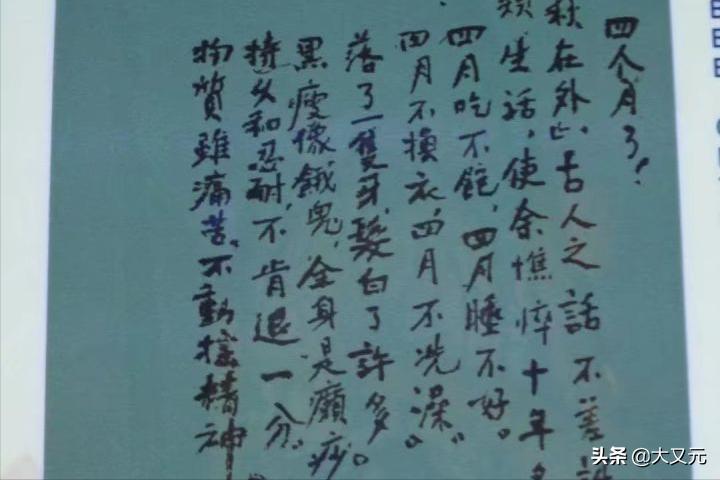 四个月了!
秋在外」古人之話不差
生話,使余憔悴十年多
四月吃不飽,四月睡不好。
四月不換衣,四月不洗澡。
落了一隻牙,髮白了許多。
黑瘦像餓鬼,全身是癩痧。
持久和忍耐,不肯退一分。
物質雖痛苦,不動搖精神
头条 @大又元